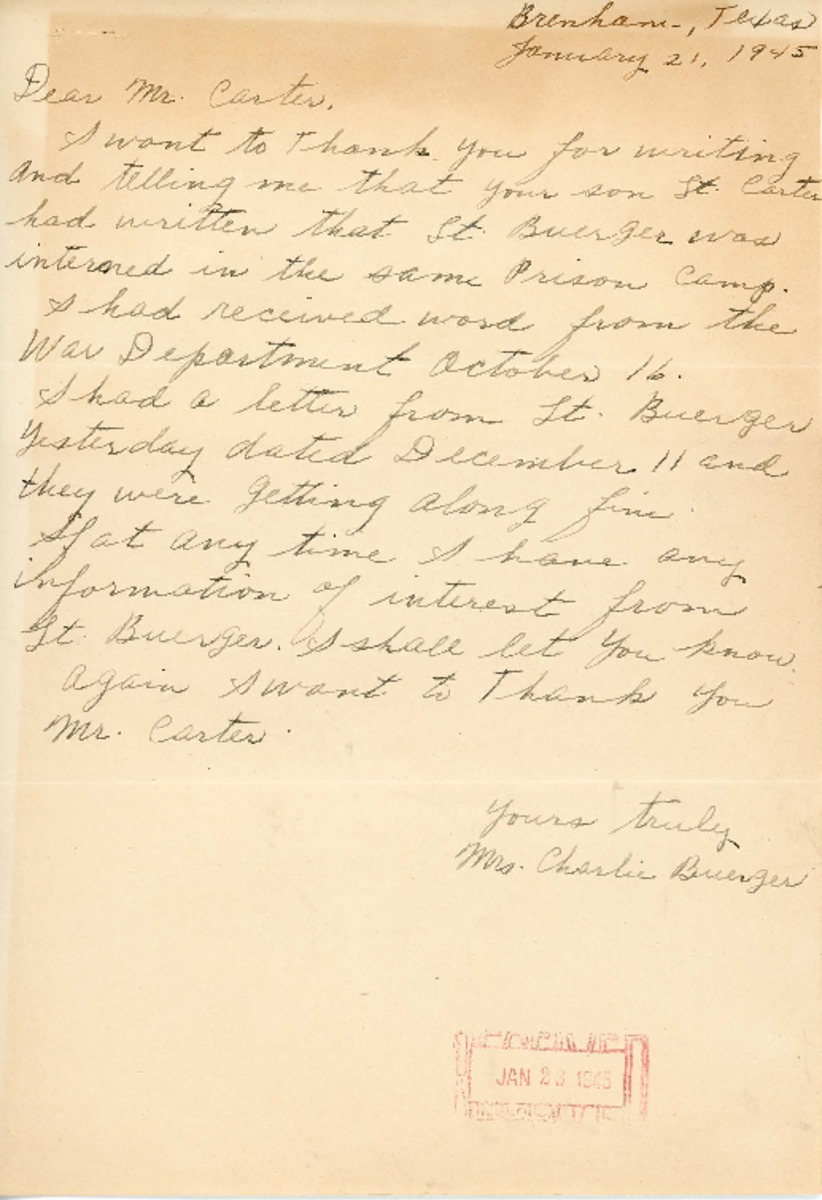 Brenham, Texas
January 21, 1945
Dear Mr. Carter,
I want to Thank you for writing
and telling me that your son Lt. Carter
had written that Lt. Buerger was
interned in the same Prison Camp.
I had received word from the
War Department October 16.
I had a letter from Lt. Buerger
Yesterday dated December 11 and
they were getting along fine.
If at any time I have any
information of interest from
Lt. Buerger. I shall let you know.
Again I want to Thank you
Mr. Carter.
Yours truly
Mrs. Charlie Buerger
JAN 23 1945